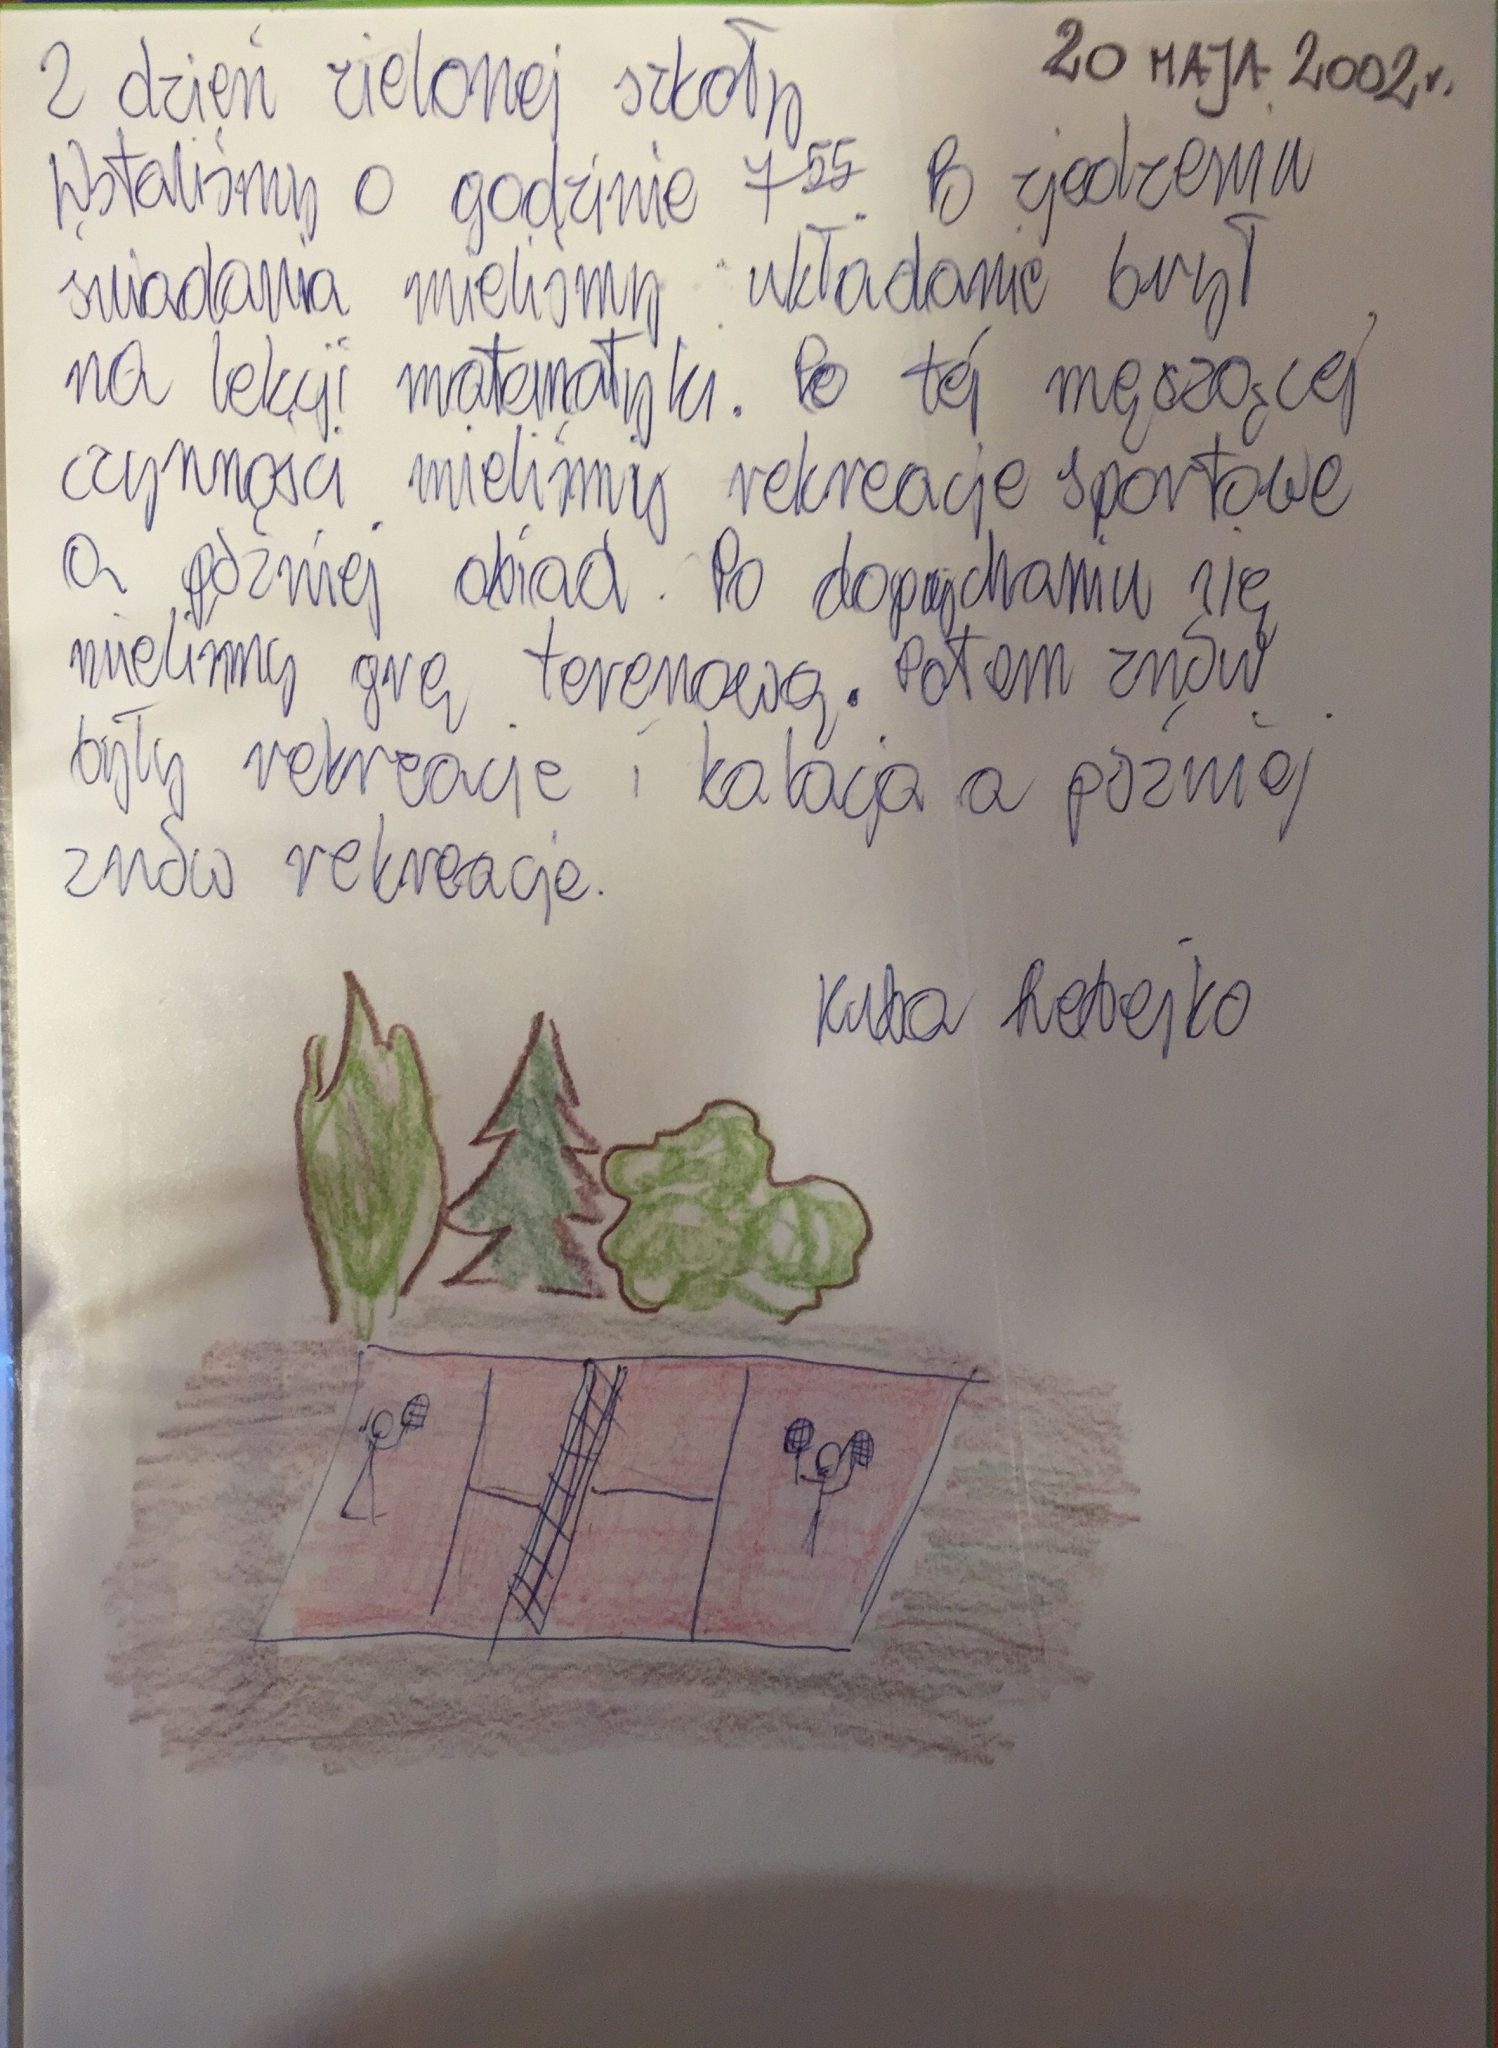 2 dzień zielonej szkoły 20 MAJA 2002r.
Wstaliśmy o godzinie 7 55. Po zjedzeniu
śniadania mieliśmy układanie brył
na lekcji matematyki. Po tej męszącej
czynności mieliśmy rekreacje sportowe
a później obiad. Po dopychaniu się
mieliśmy grę terenową. Potem znów
były rekreacje i kolacja a później
znów rekreacje.
Kuba